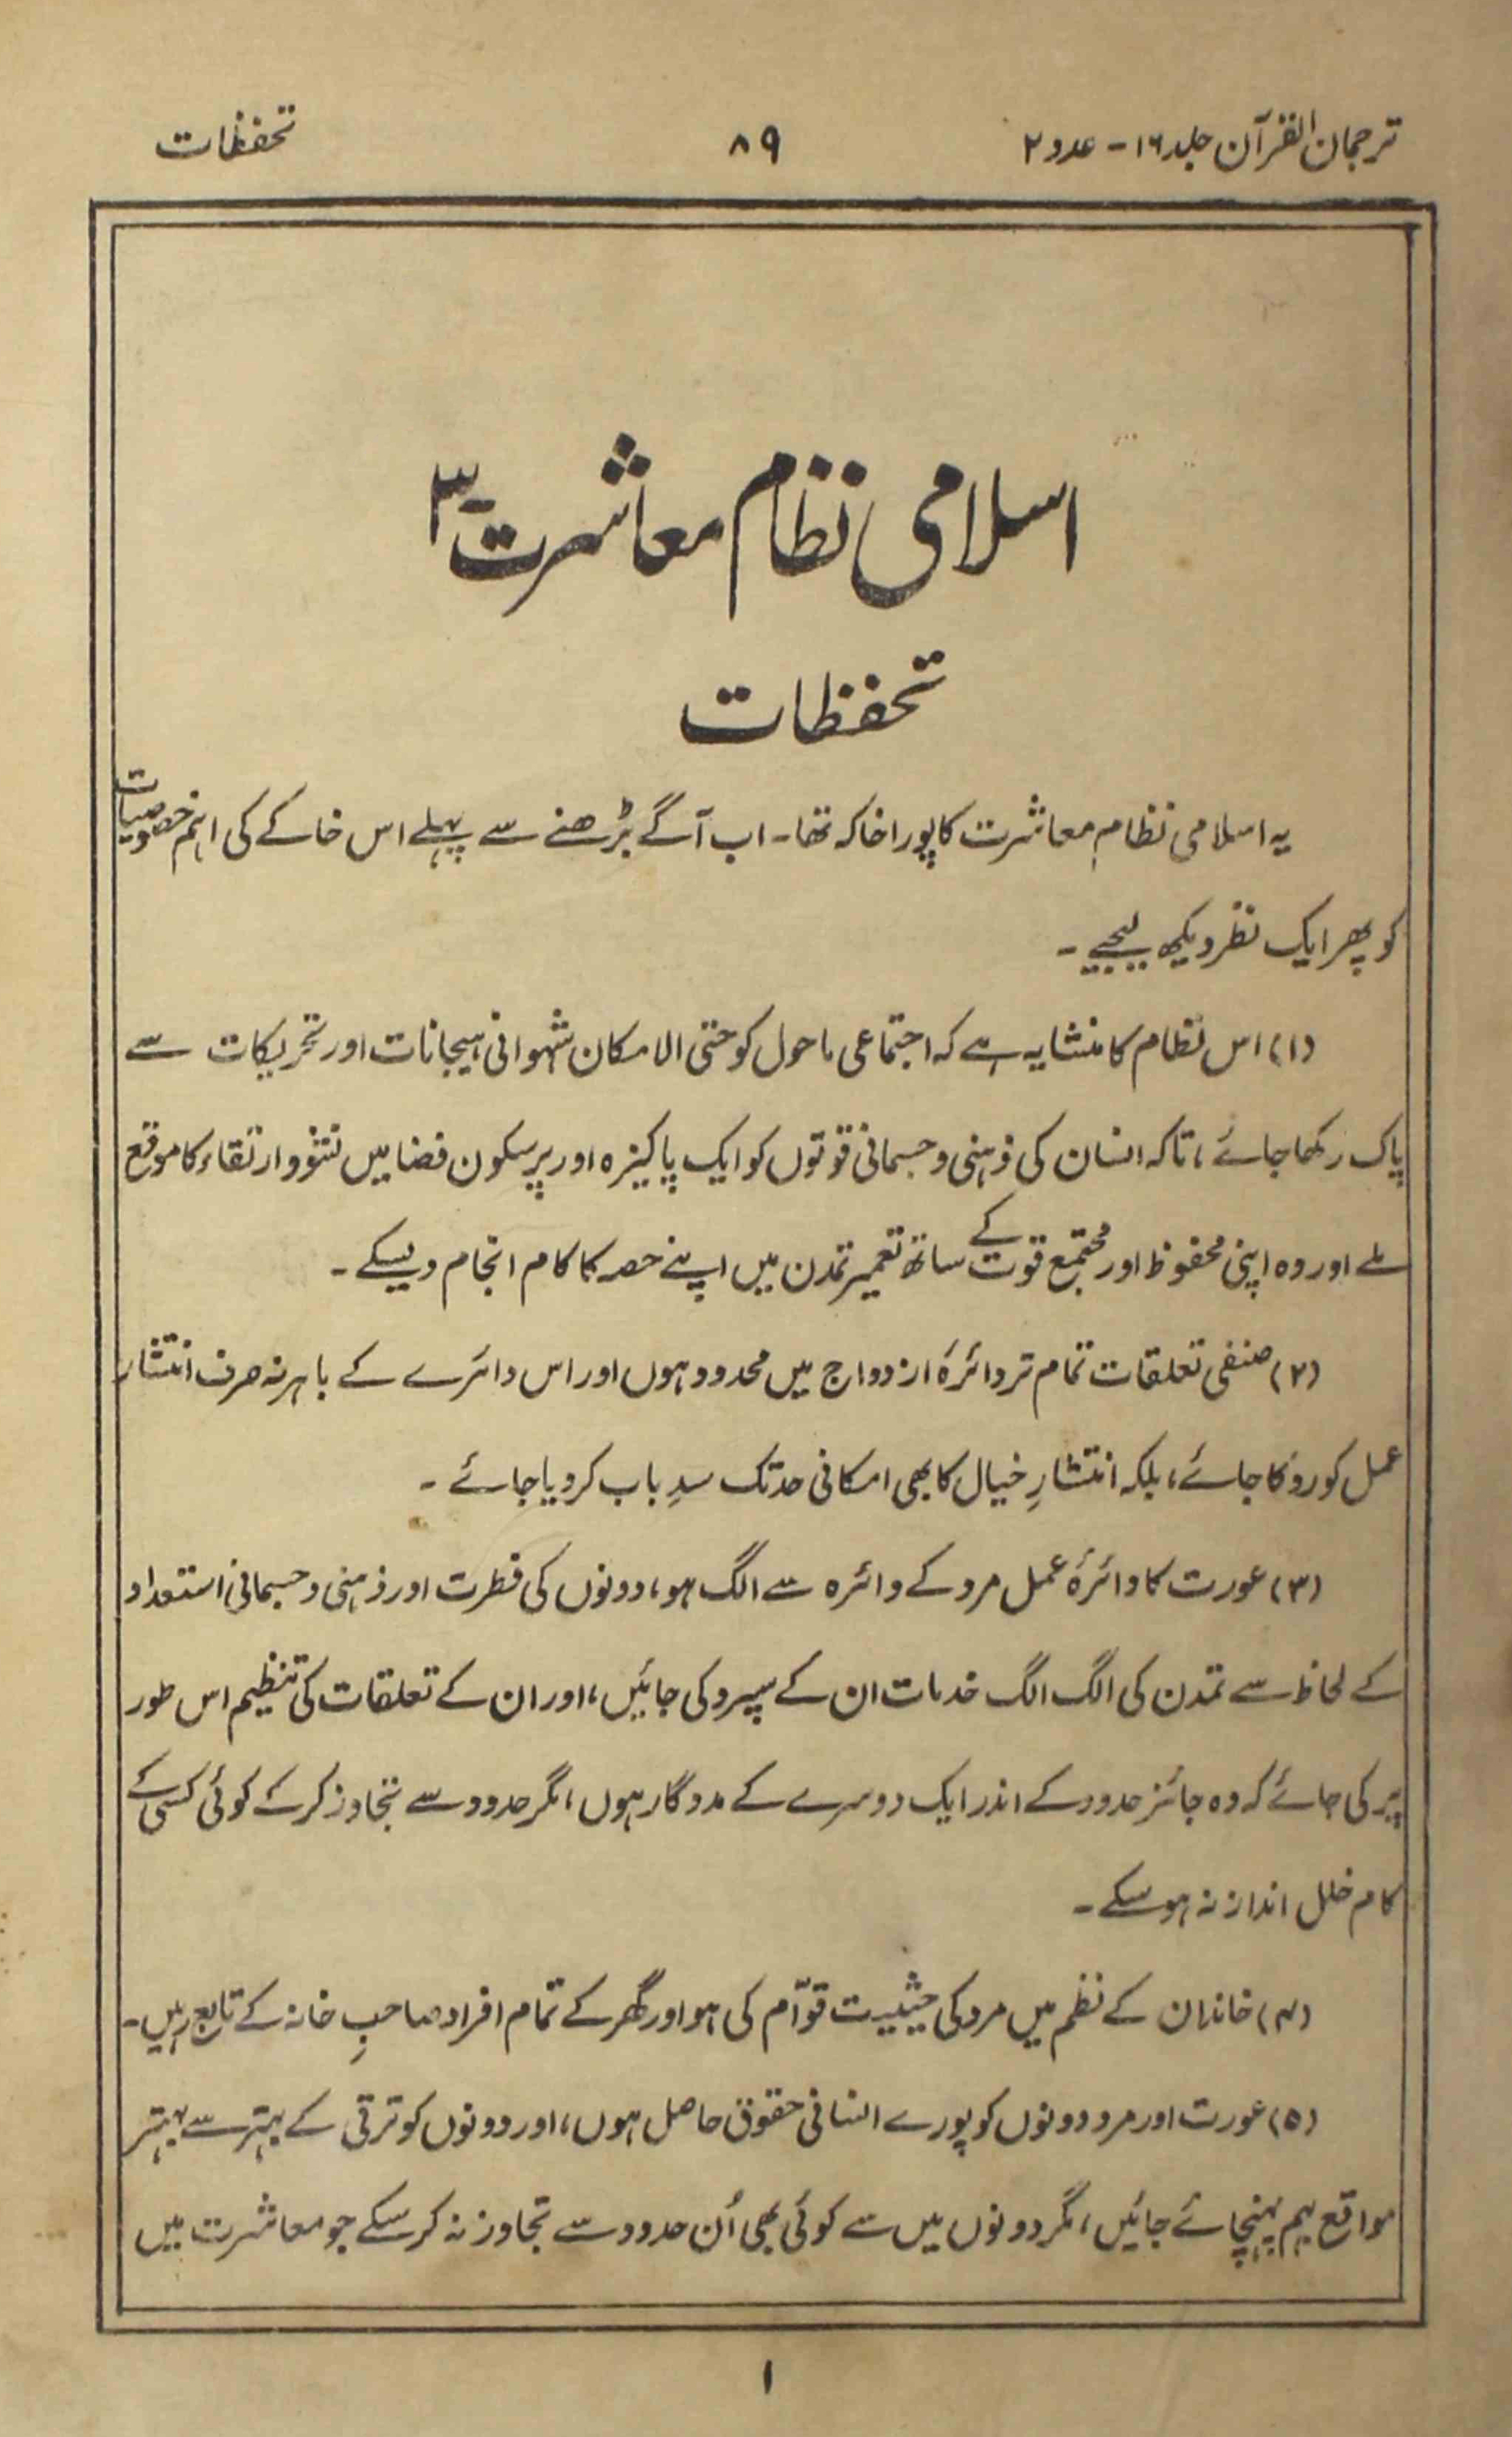 ترجمان القرآن جلد ۱۶- عدد ۲
۸۹
تحفظات
اسلامی نظام معاشرت -۳
تحفظات
یہ اسلامی نظامِ معاشرت کا پورا خاکہ تھا۔ اب آگے بڑھنے سے پہلے اس خاکے کی اہم خصوصیات
کو پھر ایک نظر دیکھ لیجیے۔
(۱) اس نظام کا منشا یہ ہے کہ اجتماعی ماحول کو حتی الامکان شہوانی ہیجانات اور تحریکات سے
پاک رکھا جائے، تاکہ انسان کی ذہنی و جسمانی قوتوں کو ایک پاکیزہ اور پرسکون فضا میں نشو و ارتقاء کا موقع
ملے اور وہ اپنی محفوظ اور مجتمع قوت کے ساتھ تعمیر تمدن میں اپنے حصہ کا کام انجام دیسکے۔
(۲) صنفی تعلقات تمام تر دائرۂ ازدواج میں محدود ہوں اور اس دائرے کے باہر نہ صرف انتشار
عمل کو روکا جائے، بلکہ انتشارِ خیال کا بھی امکانی حد تک سدِ باب کر دیا جائے۔
(۳) عورت کا دائرۂ عمل مرد کے دائرہ سے الگ ہو، دونوں کی فطرت اور ذہنی و جسمانی استعداد
کے لحاظ سے تمدن کی الگ الگ خدمات ان کے سپرد کی جائیں، اور ان کے تعلقات کی تنظیم اس طور
پر کی جائے کہ وہ جائز حدود کے اندر ایک دوسرے کے مددگار ہوں، مگر حدود سے تجاوز کر کے کوئی کسی کے
کام خلل انداز نہ ہو سکے۔
(۴) خاندان کے نظم میں مرد کی حیثیت قوّام کی ہو اور گھر کے تمام افراد صاحبِ خانہ کے تابع رہیں۔
(۵) عورت اور مرد دونوں کو پورے انسانی حقوق حاصل ہوں، اور دونوں کو ترقی کے بہتر سے بہتر
مواقع بہم پہنچائے جائیں، مگر دونوں میں سے کوئی بھی اُن حدود سے تجاوز نہ کر سکے جو معاشرت میں
۱